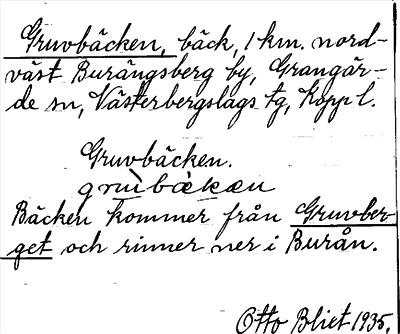 Gruvbäcken, bäck, 1 km. nord-
väst Burängsberg by, Grangär-
de sn, Västerbergslags tg, Kopp l.
Gruvbäcken.
grùbäkæn
Bäcken kommer från Gruvber
get och rinner ner i Burån.
Otto Blixt 1935.